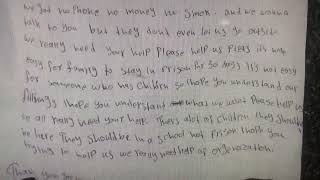 we got no Phone no money no Smok. and we wanna
talk to you but they dont even let us go outside
we really need your help Please help us Please its not
easy for family to stay in Prison for 50 days it's not easy
for someone who has children So I hope you understand our
I hope you understand what we want Please help us
we all really need your help. There's alot of children they should
be here They should be in a school not Prison thank you
trying to help us we really need help of organization.
Than you